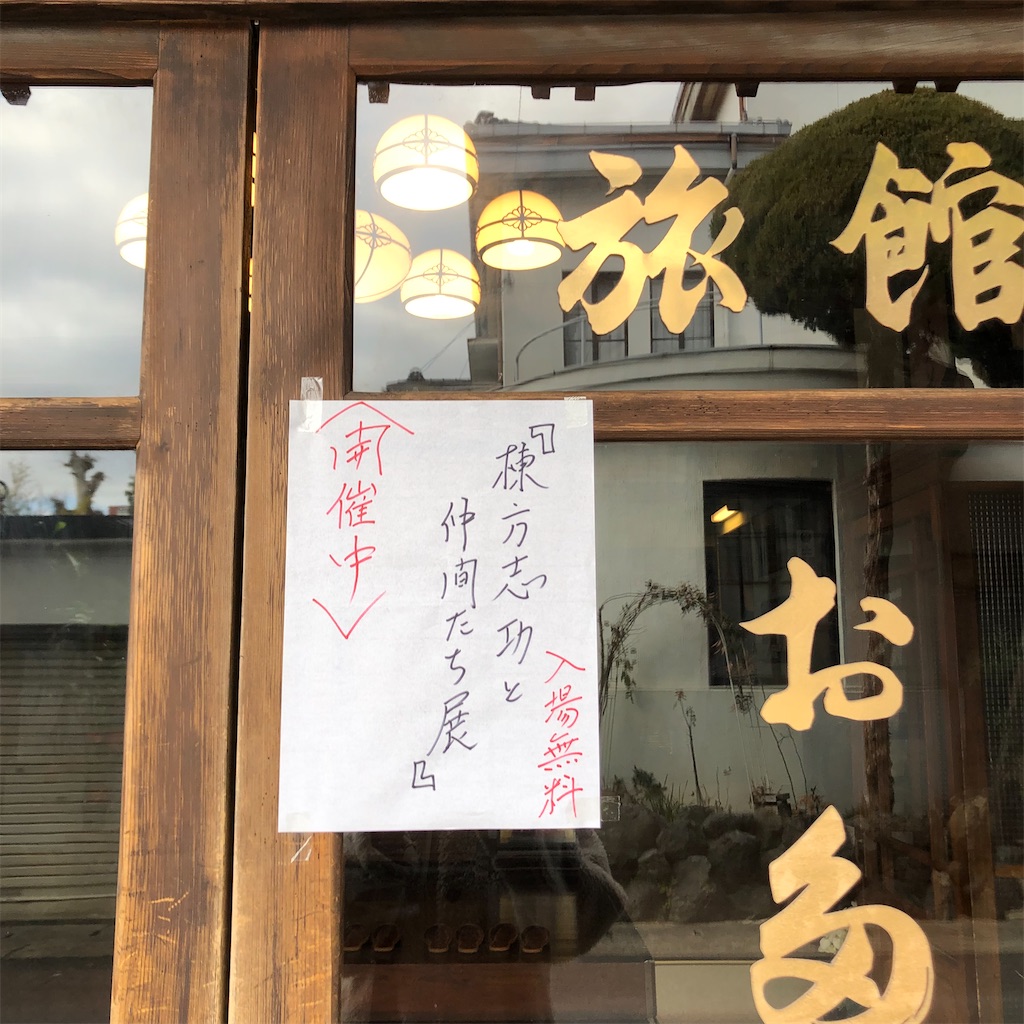 旅館
おお
『棟方志功と
仲間たち展』
入場無料
<開催中>